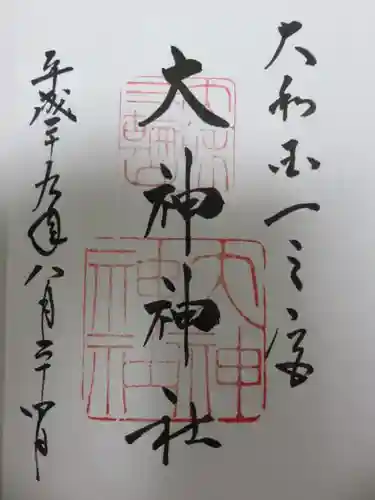 大和国一之宮
大神神社
平成二十九年八月二十四日